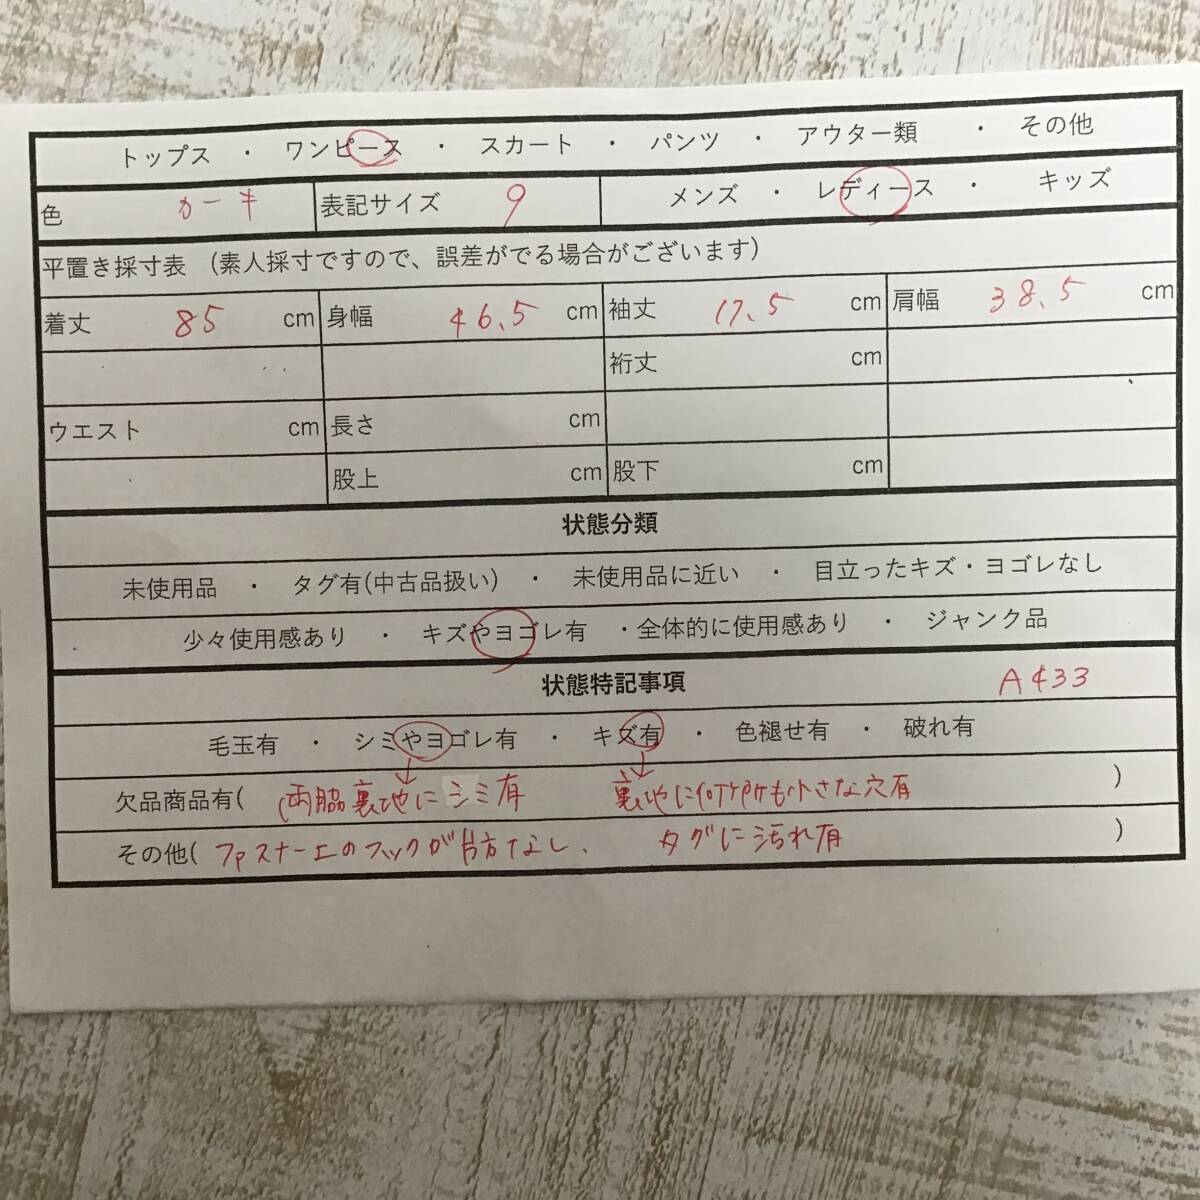 トップス ・ ワンピース ・ スカート ・ パンツ ・ アウター類 ・ その他
色 カーキ 表記サイズ 9 メンズ ・ レディース ・ キッズ
平置き採寸表 (素人採寸ですので、誤差がでる場合がございます)
着丈 85 cm 身幅 46.5 cm 袖丈 17.5 cm 肩幅 38.5 cm
裄丈 cm
ウエスト cm 長さ cm
股上 cm 股下 cm
状態分類
未使用品 ・ タグ有(中古品扱い) ・ 未使用品に近い ・ 目立ったキズ・ヨゴレなし
少々使用感あり ・ キズやヨゴレ有 ・全体的に使用感あり ・ ジャンク品
状態特記事項 A433
毛玉有 ・ シミやヨゴレ有 ・ キズ有 ・ 色褪せ有 ・ 破れ有
欠品商品有( 両脇裏地にシミ有 裏地に何ケ所も小さな穴有 )
その他( ファスナー上のフックが片方なし、 タグに汚れ有 )